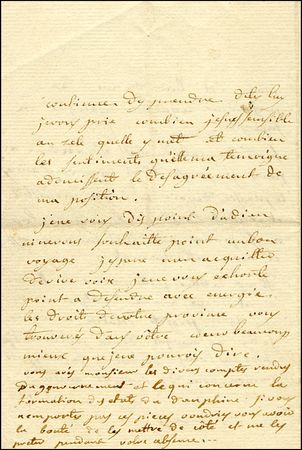 continuer dy prendre dites luy
je vous prie combien je suis sensible
au zele quelle y met et combien
les sentiments quelle ma temoigné
adoucissent le desagréement de
ma position.
je ne vous dis point d'adieu
ni ne vous souhaitte point un bon
voyage jespere men acquitter
de vive voix je ne vous exhorte
point a defendre avec energie
les droit de votre province vous
trouverez dans votre coeur beaucoup
mieux que je ne pourois dire.
vous avez monsieur les divers comptes rendus
et le qui concerne la
formation des etats du dauphiné si vous
nemportes pas ces pieces voudries vous avoir
la bonté de les mettre de coté et me les
preter pendant votre absence